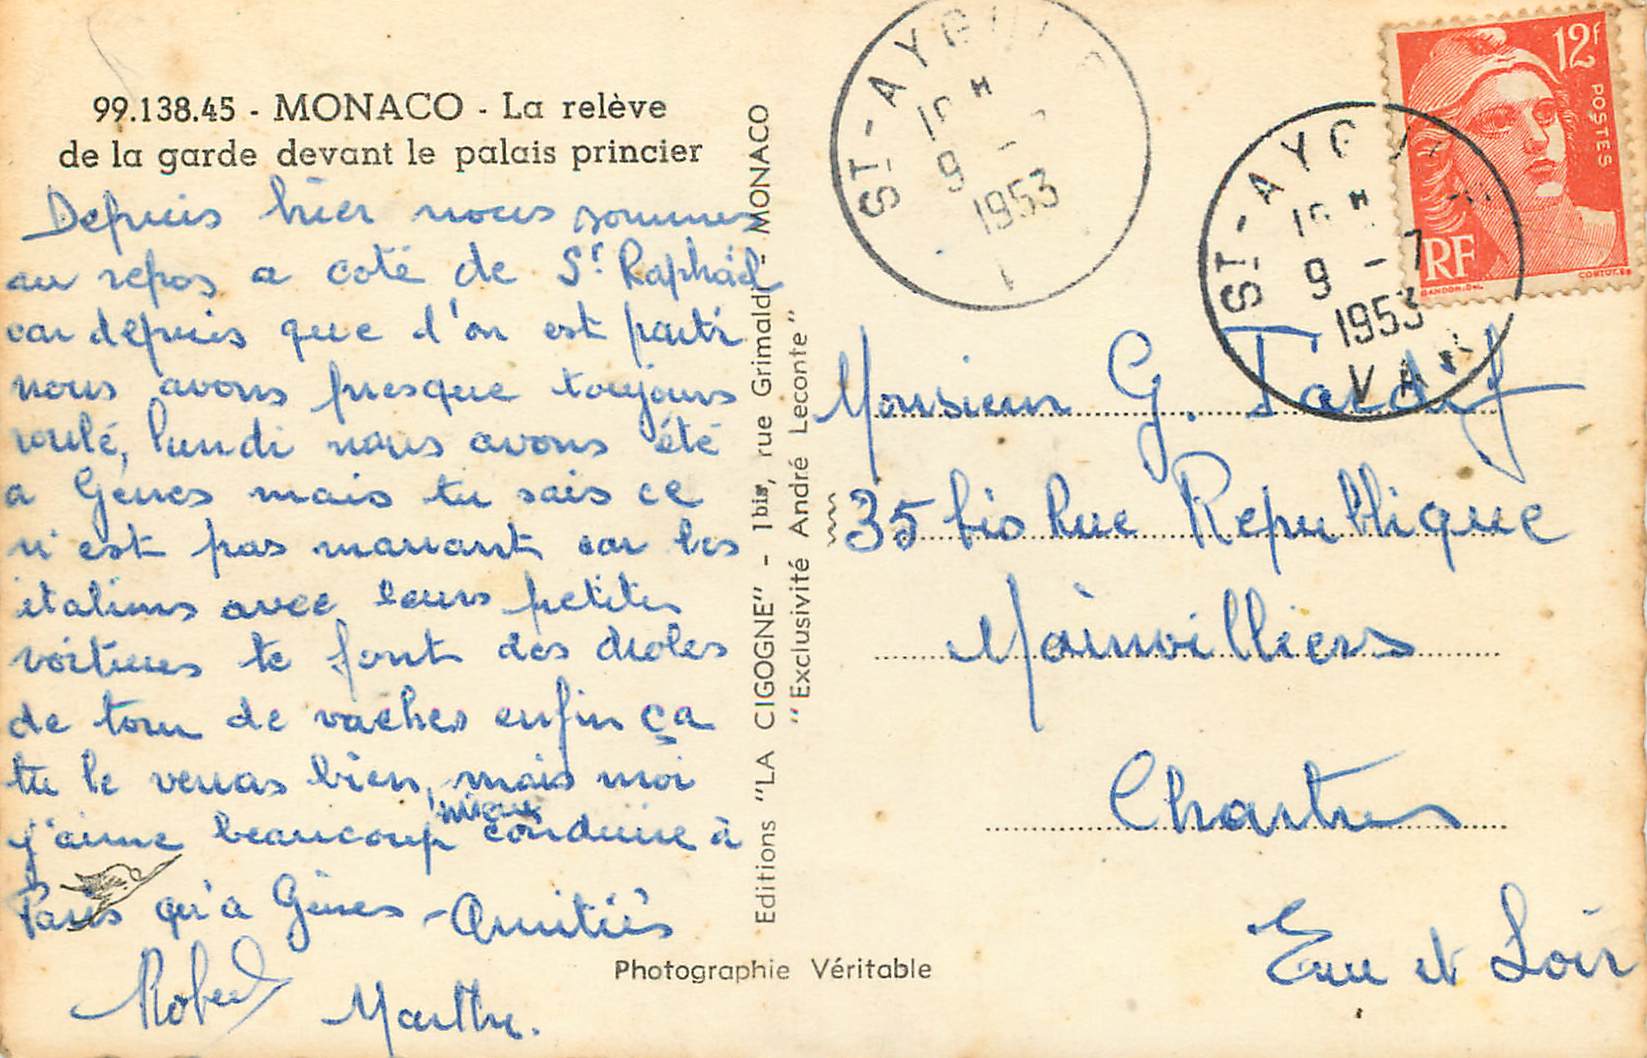 99.138.45 - MONACO - La relève
de la garde devant le palais princier
Depuis hier nous sommes
au repos a coté de St Raphaël
car depuis que l'on est parti
nous avons presque toujours
roulé, lundi nous avons été
a Gênes mais tu sais ce
n'est pas marrant car les
italiens avec leurs petites
voitures te font des droles
de tour de vaches enfin ça
tu le verras bien, mais moi
j'aime beaucoup mieux conduire à
Paris qu'a Gênes - Amitiés
Robert Marthe.
Editions "LA CIGOGNE" - 1bis, rue Grimaldi - MONACO
"Exclusivité André Leconte"
Photographie Véritable
ST-AYG
9 -
1953
ST-AYG
9 - 7
1953
VAR
12f
POSTES
RF
GANDON.DEL
Monsieur G. Tardif
35 bis Rue Republique
Mainvilliers
Chartres
Eure et Loir